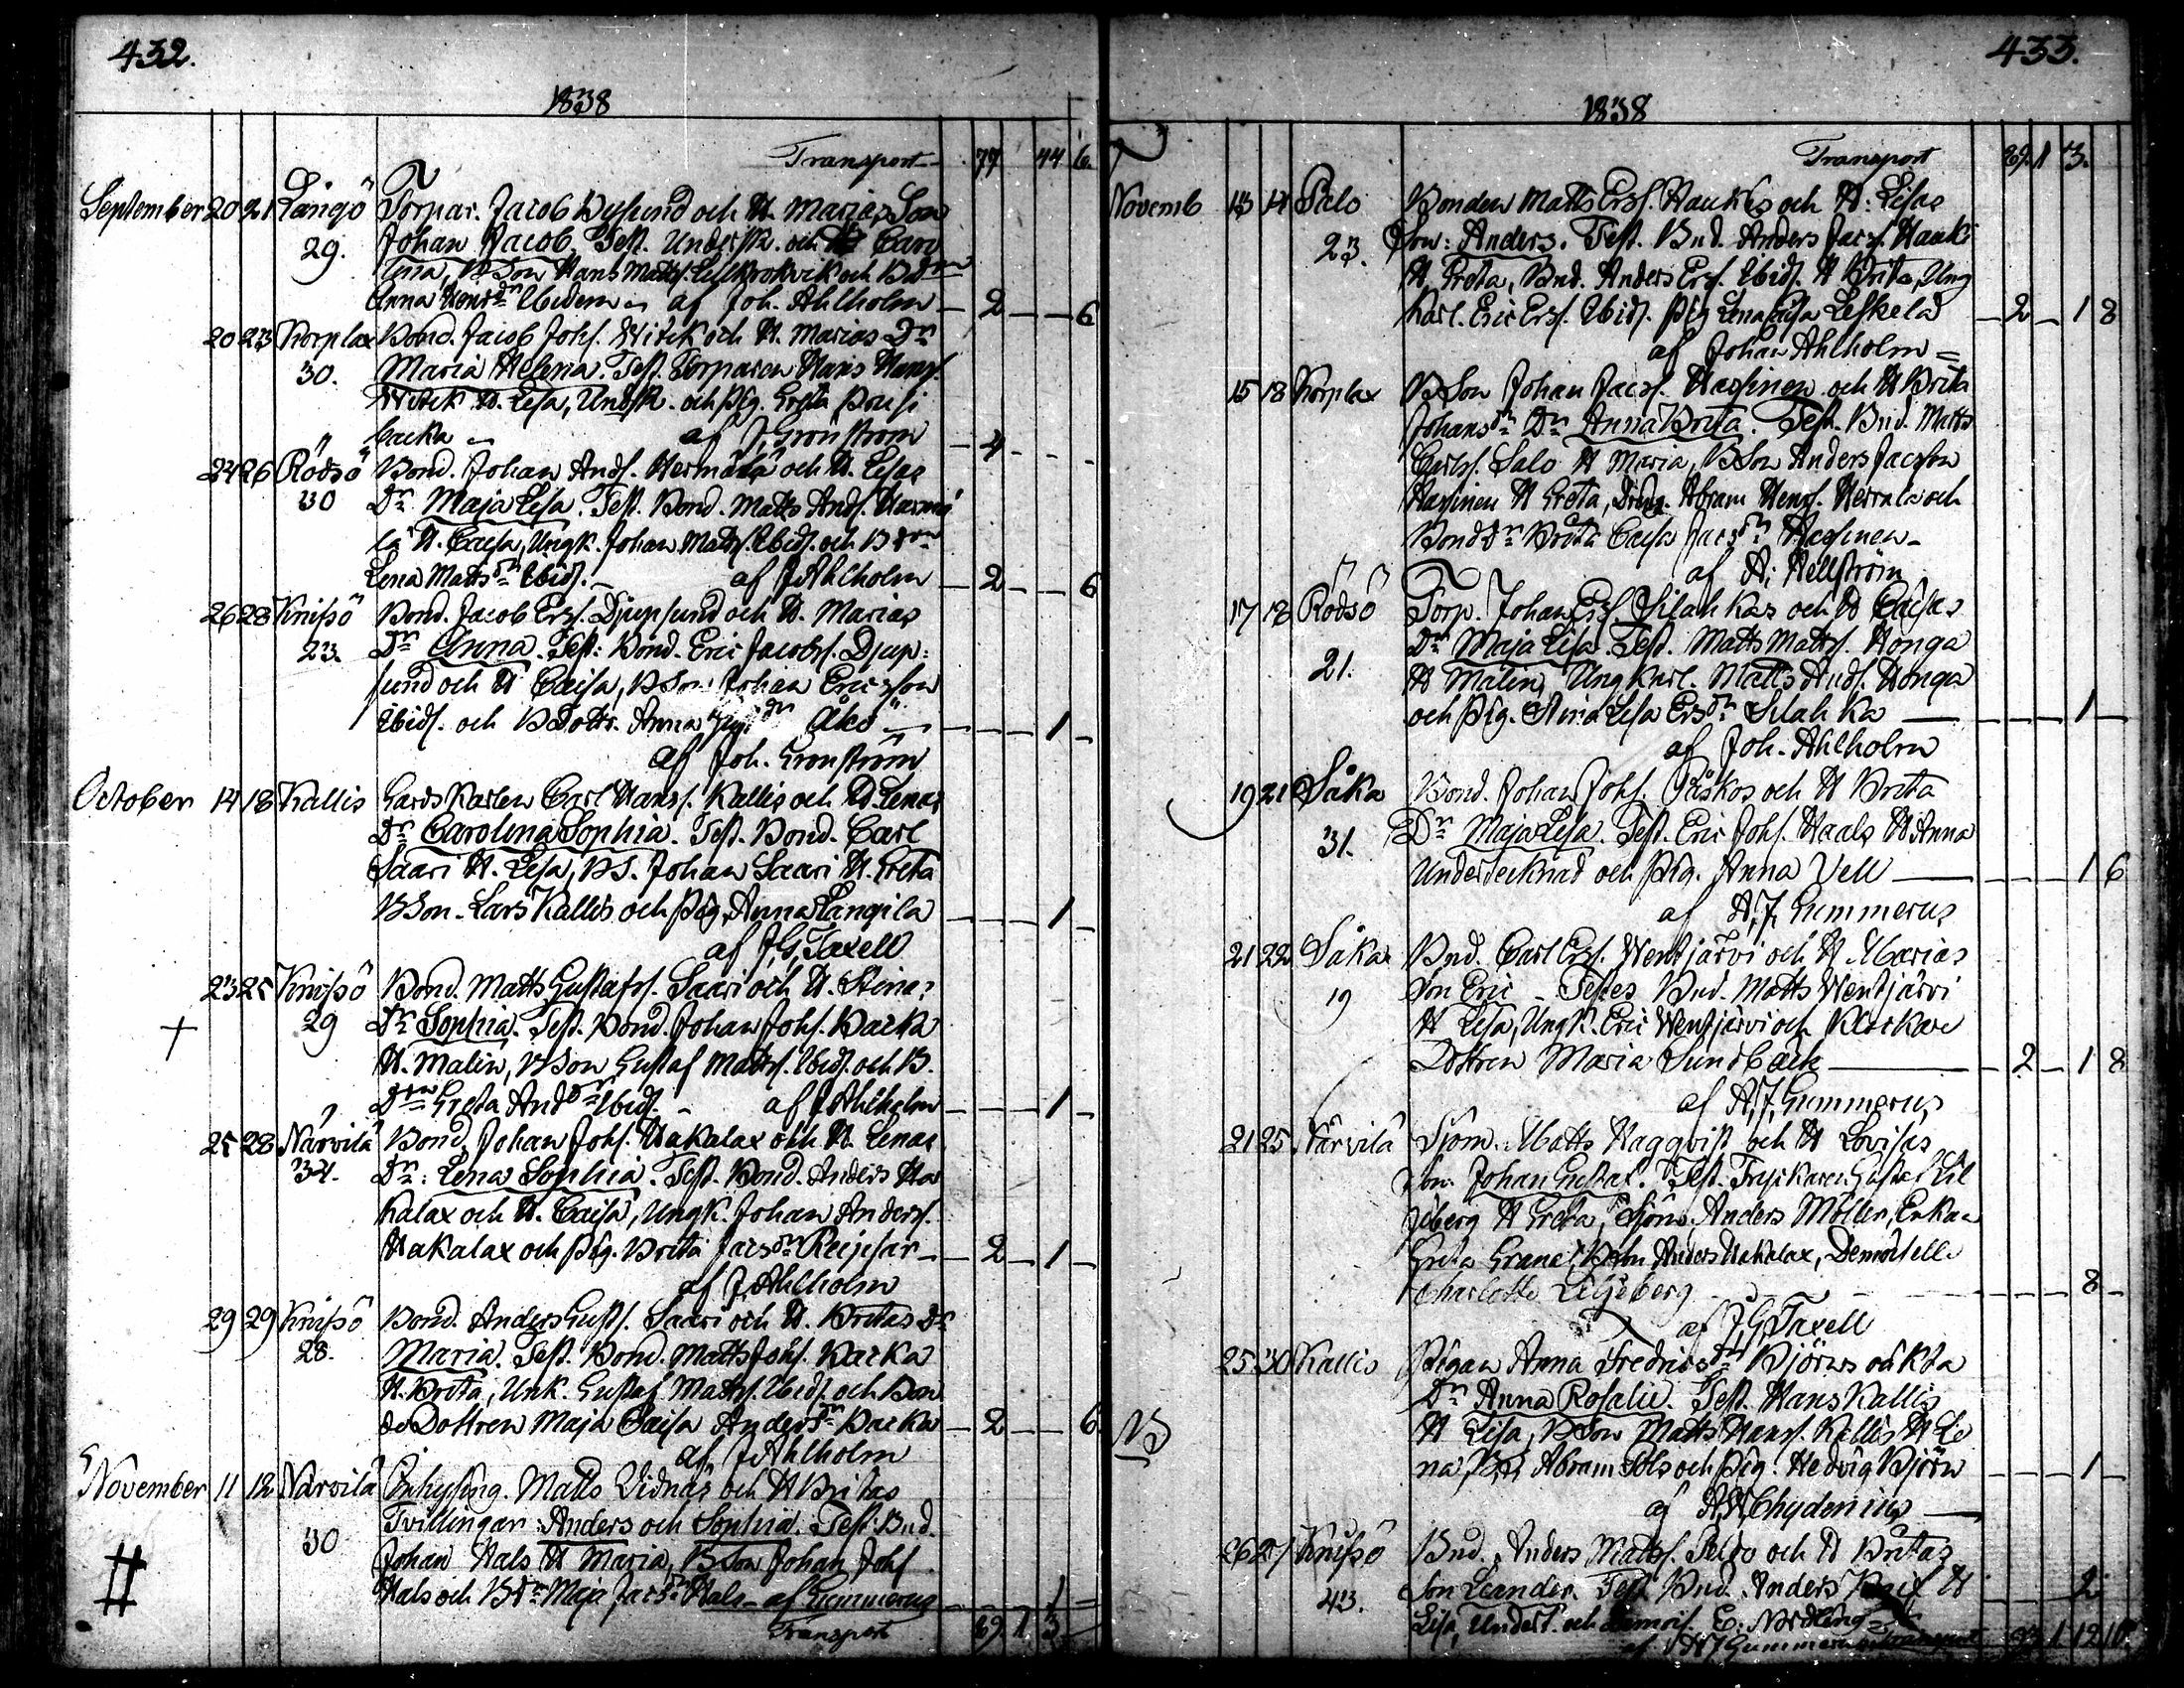 432.
1838
Transport 77 44 6
September 20 21 Långö Torpar. Jacob Dysund och H. Marias Son
29. Johan Jacob. Test. Underssk. och H. Caro
lina, BSon Hans Matts. Lillkrokvik och BDtren
Anna Hensdr Ibidem af Joh. Ahlholm 2 6
20 23 Korplax Bond. Jacob Johs. Witick och H. Marias Dr
30. Maria Helena. Test. Torparen Hans Hans.
Witick H. Lisa, Undssk. och Pig. Greta Pousi
backa af J. Grönström 4
24 26 Rödsö Bond. Johan Ands. Hermälä och H. Lisas
30 Dr Maja Lisa. Test. Bond. Matts Ands. Hermä
lä H. Caisa, Ungk. Johan Matts. Ibid. och BDtren
Lena Mattsdr Ibid. af J. Ahlholm 2 6
26 28 Knifsö Bond. Jacob Ers. Djupsund och H. Marias
23. Dr Anna. Test: Bond. Eric Jacobs. Djup:
sund och H Caisa, BSon Johan Ericsson
Ibid. och BDottr. Anna dr Åkö 1
af Joh. Grönström
October 14 18 Kallis Gårdskarlen Carl Hans. Kallis och H Lenas
Dr Carolina Sophia. Test. Bond. Carl
Saari H. Lisa, BS. Johan Saari H. Greta
BSon Lars Kallis och Pig. Anna Långila 1
af J.G. Taxell
23 25 Knifsö Bond. Matts Gustafs. Saari och H. Stinas
29 Dr Sophia. Test. Bond. Johan Johs. Backa
H. Malin, BSon Gustaf Matts. Ibid. och B.
Dtren Greta Andsdr Ibid. af J Ahlholm 1
25 28 Närvilä Bond. Johan Johs. Hakalax och H. Lenas
34. Dr: Lena Sophia. Test. Bond. Anders Ha
kalax och H. Caisa, Ungk. Johan Anders.
Hakalax och Pig. Brita Jacsdr Reipsar 2 1
af J. Ahlholm
29 29 Knifsö Bond. Anders Gusts. Saari och H. Britas Dr
28. Maria. Test. Bond. Matts Johs. Backa
H. Brita, Unk. Gustaf Matts. Ibid. och Bon
de Dottren Maja Caisa Andersdr Backa 2 6
af J Ahlholm
November 11 12 Närvilä Inhysing. Matts Vidnäs och H Britas
Tvillingar Anders och Sophia. Test. Bnd.
30 Johan Hals H Maria, BSon Johan Johs
# Hals och BDr Maja Jacsdr Hals af Gummerus 1
Transport 89 1 3
433.
1838
Transport 89. 1 3.
Novemb 13 14 Palo Bonden Matts Ers. Haukis och H: Lisas
23. Son: Anders. Test. Bnd. Anders Jacs. Hauki
H. Greta, Bnd. Anders Ers. Ibid. H Brita, Ung
karl. Eric Ers. Ibid. Pig Lena Caisa Leskelä 2 1 8
af Johan Ahlholm
15 18 Korplax BSon Johan Jacs. Hassinen och H Brita
Johansdr Dr Anna Brita. Test. Bnd. Matts
Carls. Salo H Maria, BSon Anders Jacsson
Hassinen H Greta, Dräng. Abram Hens. Herrala och
BondDr Brita Caisa Jacsdr Hassinen
af A: Hellström
17 18 Rödsö Torp. Johan Ers Silahkas och H Caisas
Dr Maja Lisa. Test. Matts Matts. Honga
21. H Malin, Ungkarl. Matts Ands. Honga
och Pig. Stina Lisa Ersdr Silahka 1
af Joh. Ahlholm
19 21 Såka Bond. Johan Johs. Påskos och H Brita
31. Dr Maja Lisa. Test. Eric Johs. Haals H Anna
Undertecknad och Pig. Anna Vell 1 6
af A.J. Gummerus
21 22 Såka Bnd. Carl Ers. Wentjärvi och H Marias
19 Son Eric Testes Bnd. Matts Wentjärvi
H Lisa, Ungk. Eric Wentjärvi och Klockare
Dottren Maria Sundbäck 2 1 8
af A.J. Gummerus
21 25 Närvilä Sjöm. Matts Haggqvist och H Lovisas
Son Johan Gustaf. Test. Gustaf Lil
jeberg H Greta, Sjöm. Anders Möller, Enkan
Greta Granö, Anders Hakalax, Demoiselle
Charlotte Liljeberg 8
af J.G. Taxell
25 30 Kallis Pigan Anna Fredricsdr Björns oäkta
Dr Anna Rosalie. Test. Hans Kallis
H Lisa, BSon Matts Hans. Kallis H Le
na, Abram Pols och Pig. Hedvig Björn 1
af A.H. Chydenius
26 27 Knifsö Bnd. Anders Matts. Peldo och H Britas
43. Son Leander. Test. Bnd. Anders Knif H 2
Lisa, Undert. och Demois. E. Nordling
af A J Gummerus Transport 93 1 12 10